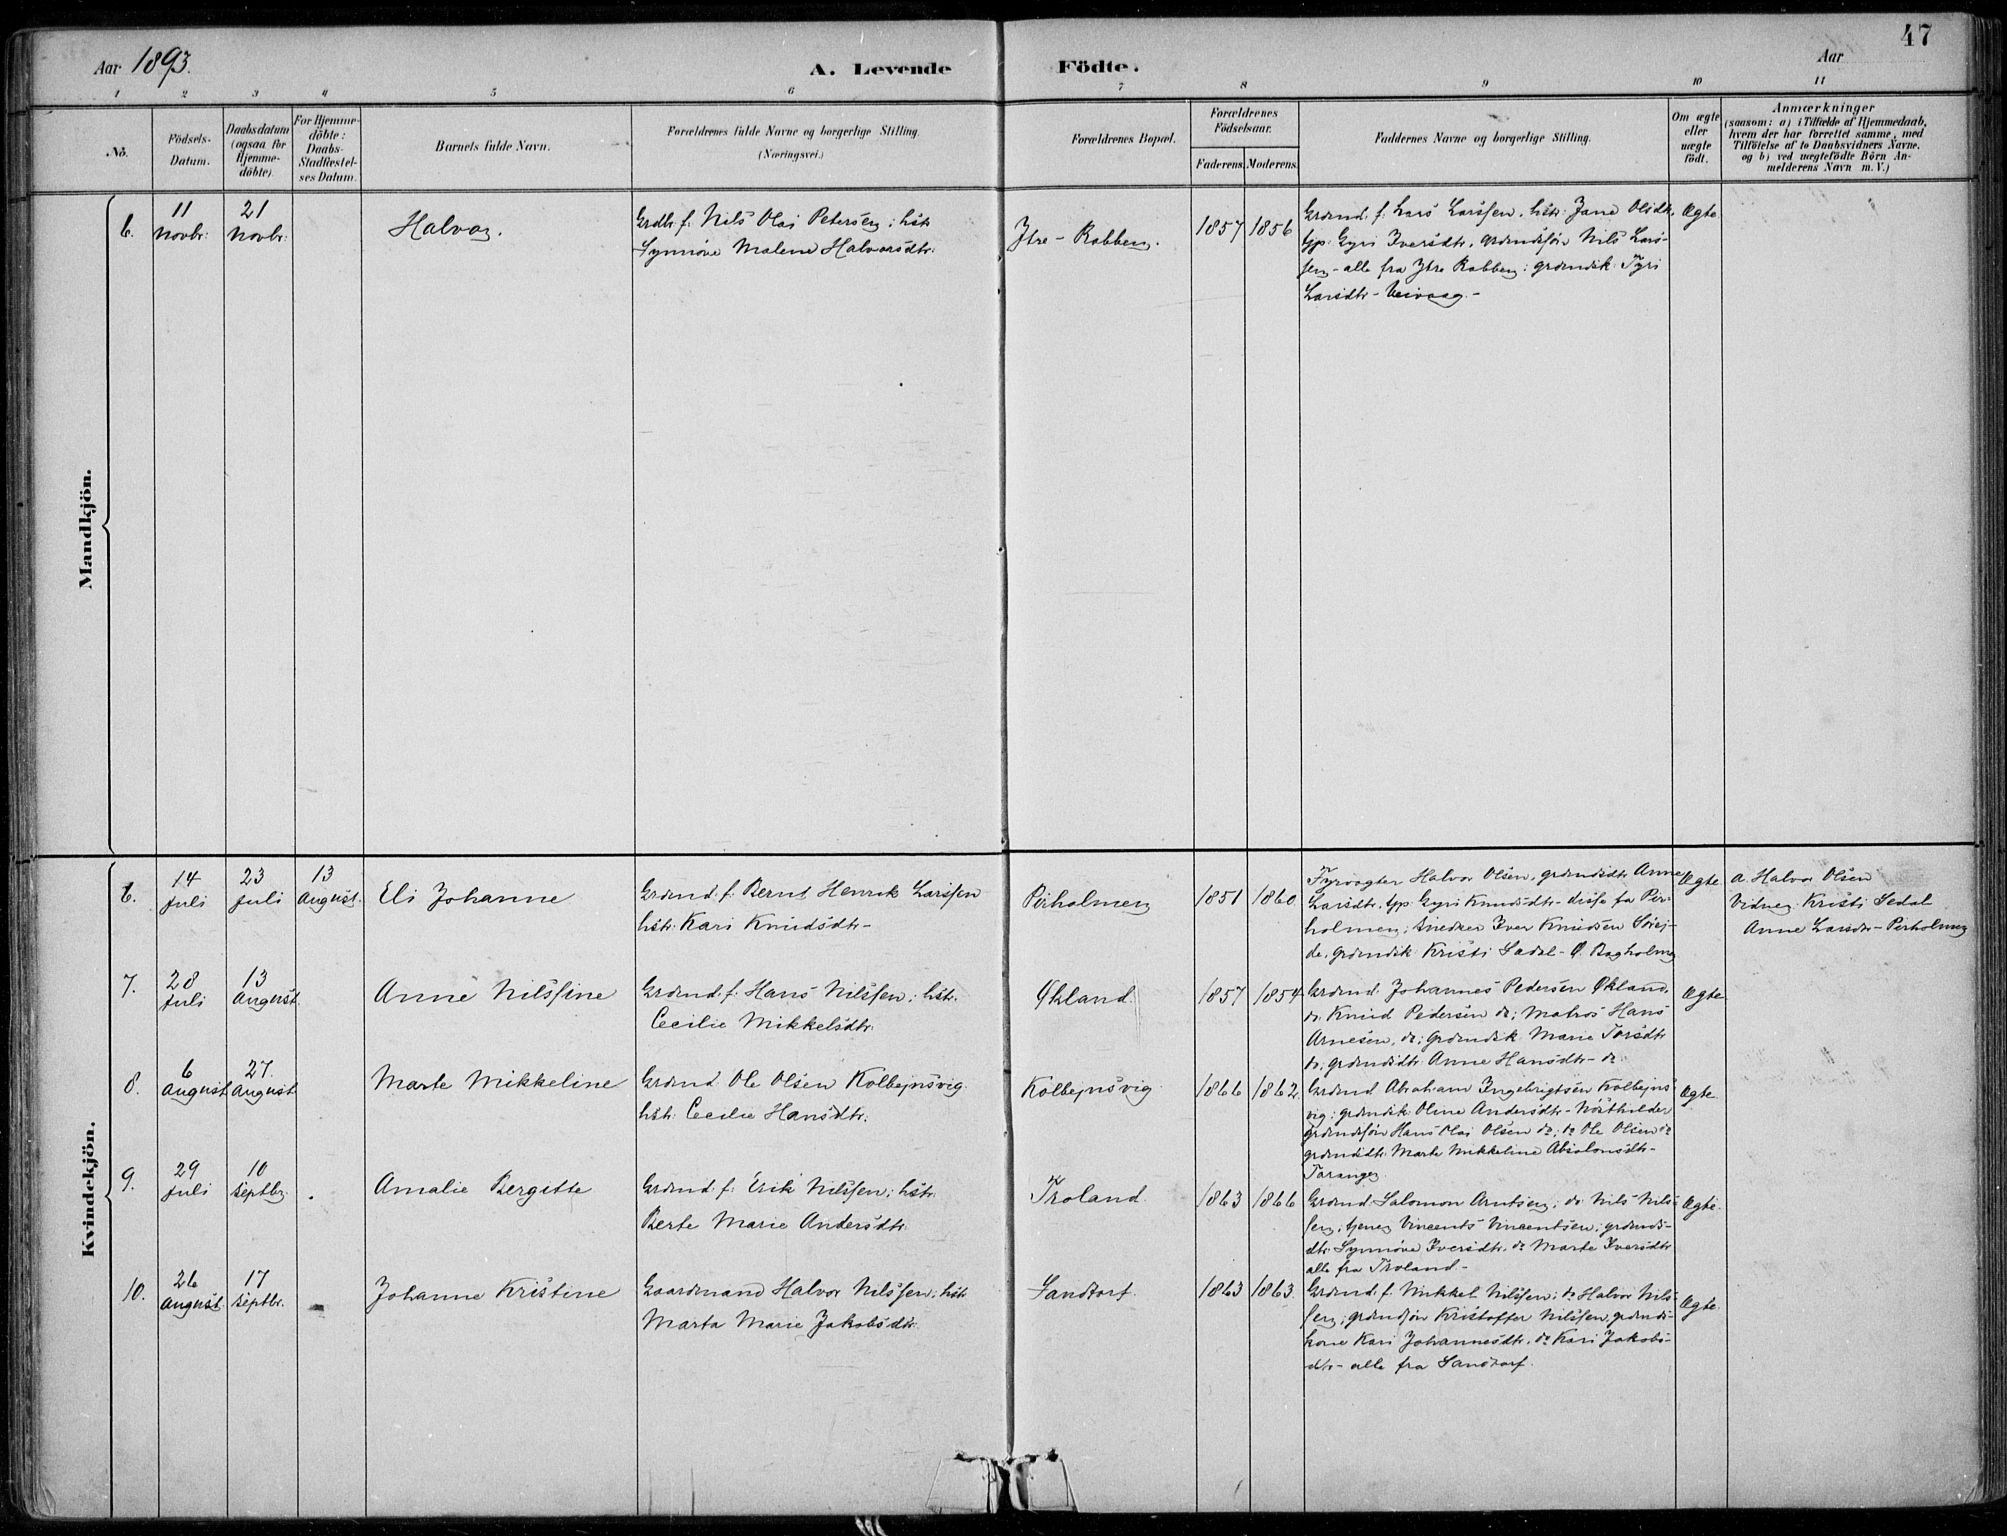 47
Aar 1893.
A. Levende Födte.
Aar
1 2 3 4 5 6 7 8 9 10 11
No.
Födsels-
Datum.
Daabsdatum
(ogsaa for
Hjemme-
döbte).
For Hjemme-
döbte:
Daabs-
Stadfæstel-
ses Datum.
Barnets fulde Navn.
Forældrenes fulde Navne og borgerlige Stilling.
(Næringsvei.)
Forældrenes Bopæl.
Forældrenes
Födselsaar.
Faderens. Moderens.
Faddernes Navne og borgerlige Stilling.
Om ægte
eller
uægte
födt.
Anmærkninger
(saasom: a) i Tilfælde af Hjemmedaab,
hvem der har forrettet samme, med
Tilföielse af to Daabsvidners Navne,
og b) ved uægtefödte Börn An-
melderens Navn m. V.)
Mandkjön.
6.
11
Novbr.
21
Novbr.
Halvor.
Grdbr. f. Nils Olai Petersen; hstr.
Synnöve Malene Halvorsdtr.
Ytre-Robben.
1857 1856
Grdmd. f. Lars Larssen, hstr. Jane Olsdtr.
tjp. Gyri Iversdtr. grdmdsön Nils Lars-
sen - alle fra Ytre Robben; grdmdsk. Tyri
Larsdtr - Veivaag -
Ægte
Kvindekjön.
6.
14
Juli
23
Juli
13
August.
Eli Johanne
Grdmd. f. Bernt Henrik Larssen
hstr. Kari Knudsdtr -
Pirholmen
1851 1860
Fyrvogter Halvor Olsen, grdmdsdtr. Anne
Larsdtr. tjp. Gyri Knudsdtr - disse fra Pir-
holmen; snedker Iver Knudsen Sörei-
de, grdmdsk. Kristi Sadal - Ö. Bagholmen
Ægte
a. Halvor Olsen
Vidner: Kristi Sedal
Anne Larsdtr - Pirholmen
7.
28
Juli
13
August
Anne Nilsine
Grdmd. f. Hans Nilssen; hstr.
Cecilie Mikkelsdtr.
Økland
1857 1854
Grdmd. Johannes Pedersen Økland,
do. Knud Pedersen do; Matros Hans
Arnesen, do; grdmdsk Marie Torsdtr
do; grdmdsdtr. Anne Hansdtr - do.
Ægte
8.
6
August
27.
August
Marte Mikkeline
Grdmd. Ole Olsen Kolbejnsvig
hstr. Cecilie Hansdtr.
Kolbejnsvig
1866 1862.
Grdmd. Abraham Ingebrigtsen Kolbejns-
vig; grdmdsk. Oline Andersdtr -
grdmdsön Hans Olai Olsen do; do Ole Olsen do
grdmdsdtr. Marte Mikkeline Absalonsdtr -
Taranger
Ægte
9.
29
Juli
10
Septbr.
Amalie Bergitte
Grdmd. f. Erik Nilssen; hstr.
Berte Marie Andersdtr.
Troland
1863 1866
Grdmd. Salomon Arntsen; do. Nils Nils-
sen; tjener Vincents Vincentsen; grdmds-
dtr. Synnöve Iversdtr. do Marte Iversdtr
alle fra Troland -
Ægte.
10.
26
August.
17
Septbr.
Johanne Kristine
Gaardmand Halvor Nilssen; hstr.
Marta Marie Jakobsdtr.
Sandtorf.
1863 1863.
Grdmd. f. Mikkel Nilssen; do Halvor Nils-
sen; grdmdsön Kristoffer Nilssen, grdmds-
kone Kari Johannesdtr. do Kari Jakobs-
dtr - alle fra Sandtorf.
Ægte